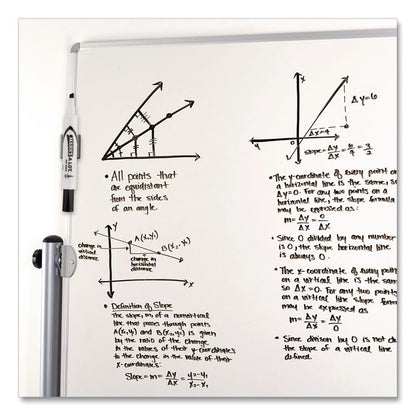 MARKS A LOT
• All points that
are equidistant
from the sides
of an angle.
y
A(x₁, y₁)
B(x₂, y₂)
change in
vertical
distance
change in
horizontal
distance
x
• Definition of Slope
The slope, m of a nonvertical
line that passes through points
A(x₁, y₁) and B(x₂, y₂) is given
by the ratio of the change
in the values of their y-coordinates
to the change in the values of their
x-coordinates.
Slope = m = Δy/Δx = y₂-y₁/x₂-x₁
x
Δy=6
y
0
Δx=4
x
slope = Δy/Δx = 6/4 = 3/2
• The y-coordinate of every point on
a horizontal line is the same, so
Δy=0. For any two points on a
horizontal line, the slope formula
may be expressed as:
m = Δy/Δx = 0/Δx
• Since 0 divided by any number
is 0, the slope horizontal line
is always 0.
• The x-coordinate of every point
on a vertical line is the same
so ΔX=0. For any two points
on a vertical line slope form
may be expressed as
m = Δy/Δx = Δy/0
• Since division by 0 is not de
the slope of a vertical line
defined.